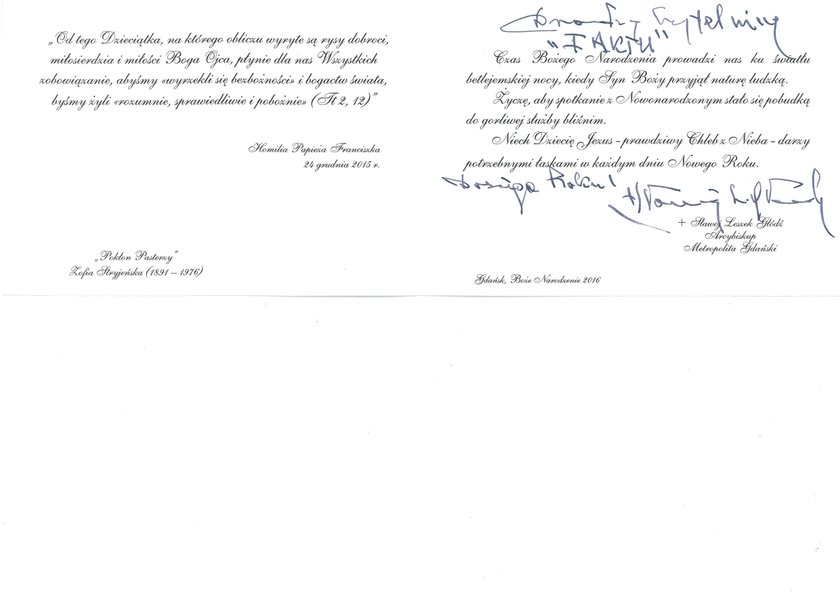 „Od tego Dzieciątka, na którego obliczu wyryte są rysy dobroci,
miłosierdzia i miłości Boga Ojca, płynie dla nas Wszystkich
zobowiązanie, abyśmy «wyrzekli się bezbożności» i bogactw świata,
byśmy żyli «rozumnie, sprawiedliwie i pobożnie» (Tt 2, 12)”
Homilia Papieża Franciszka
24 grudnia 2015 r.
„Pokłon Pasterzy”
Zofia Stryjeńska (1891 – 1976)
"FAKTU"
Czas Bożego Narodzenia prowadzi nas ku światłu
betlejemskiej nocy, kiedy Syn Boży przyjął naturę ludzką.
Życzę, aby spotkanie z Nowonarodzonym stało się pobudką
do gorliwej służby bliźnim.
Niech Dziecię Jezus – prawdziwy Chleb z Nieba – darzy
potrzebnymi łaskami w każdym dniu Nowego Roku.
Dosiego Roku!
+ Sławoj Leszek Głódź
Arcybiskup
Metropolita Gdański
Gdańsk, Boże Narodzenie 2016